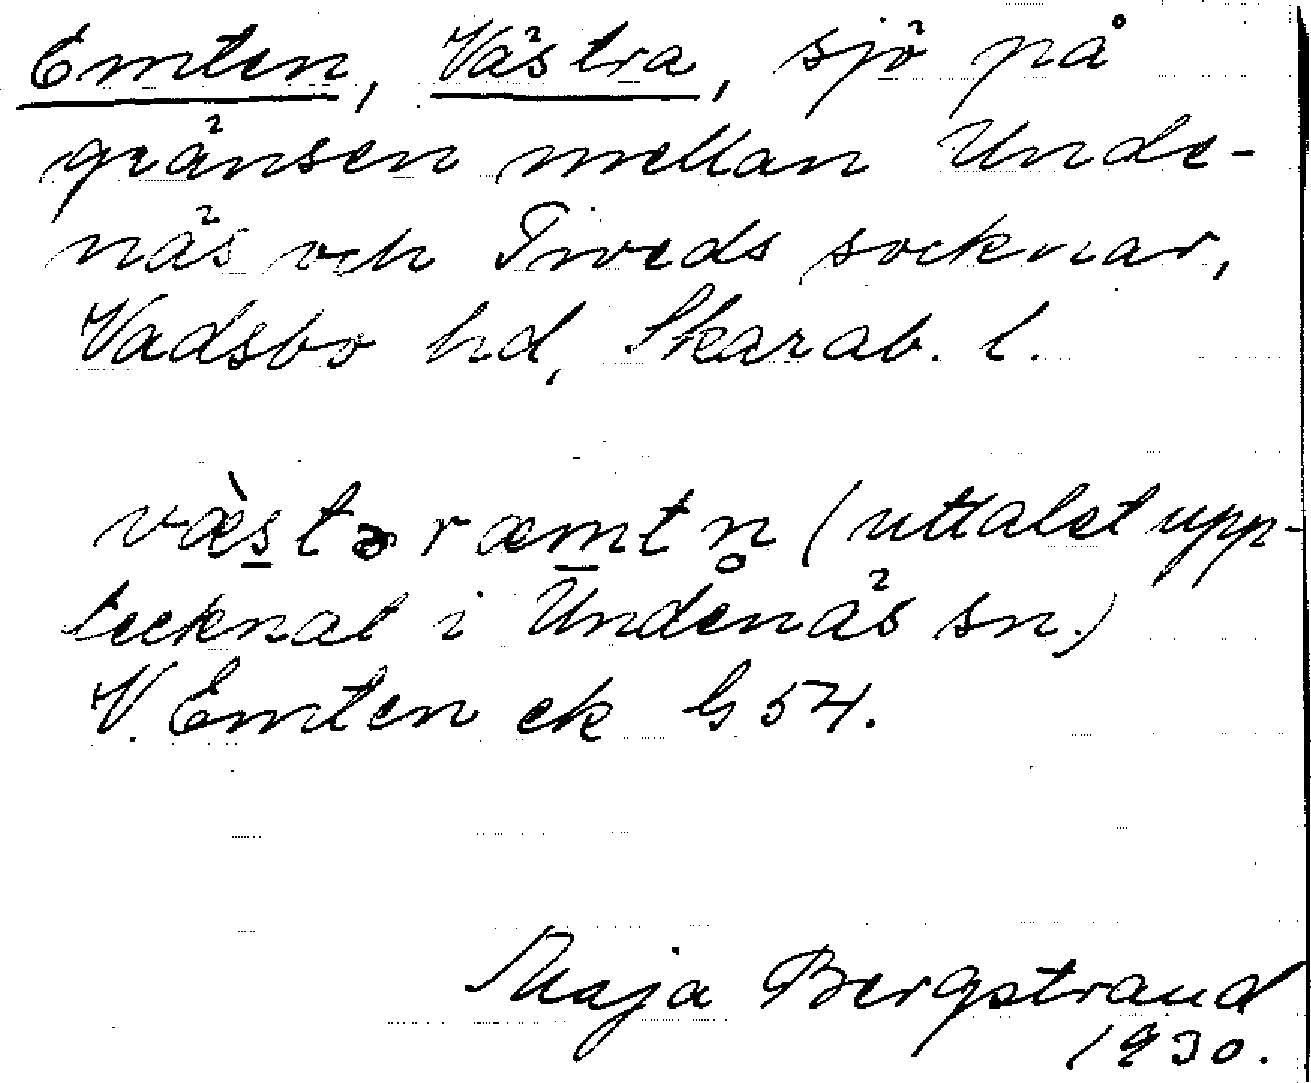 Emten, Västra, sjö på
gränsen mellan Unde-
näs och Tiveds socknar,
Vadsbo hd, Skarab. l.
væ̀s̲tər æm̲tn̥ (uttalet upp-
tecknat i Undenäs sn.)
V. Emten ek G 54.
Maja Bergstrand
1930.